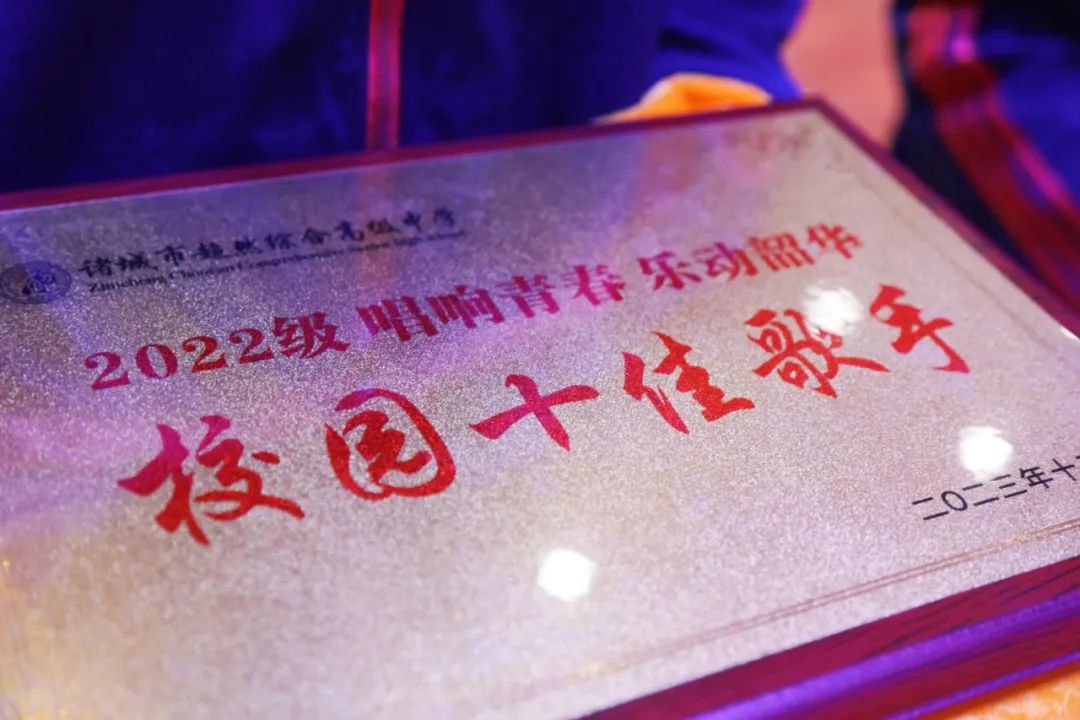 诸城市超然综合高级中学
Zhucheng Chaoran Comprehensive Senior High School
2022级 唱响青春 乐动韶华
校园十佳歌手
二〇二三年十